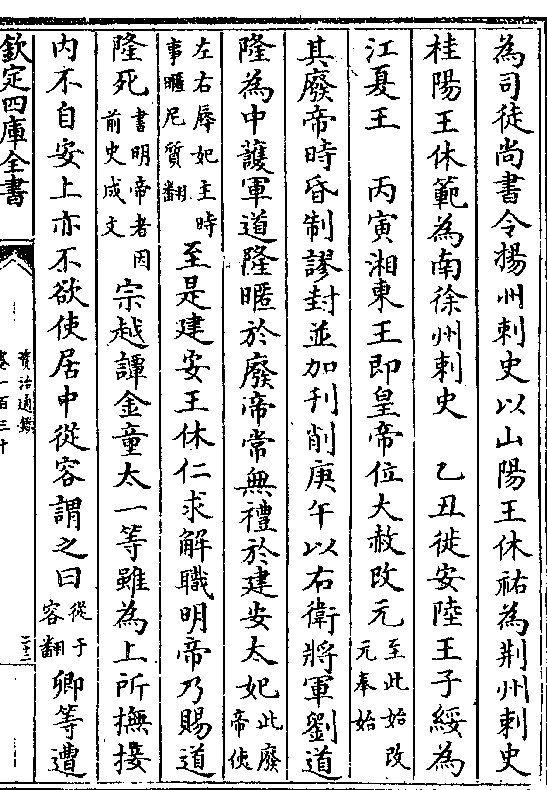 為司徒尚書令揚州刺史以山陽王休祐為荆州刺史
桂陽王休範為南徐州刺史　乙丑徙安陸王子綏為
江夏王　丙寅湘東王即皇帝位大赦改元至此始改元泰始
其廢帝時昏制謬封並加刋削庚午以右衛將軍劉道
隆為中護軍道隆暱於廢帝常無禮於建安太妃此廢帝使
左右辱妃主時事暱尼質翻至是建安王休仁求解職明帝乃賜道
隆死書明帝者因前史成文宗越譚金童太一等雖為上所撫接
内不自安上亦不欲使居中從容謂之曰從于容翻卿等遭
欽定四庫全書
資治通鑑
卷一百三十
二十二